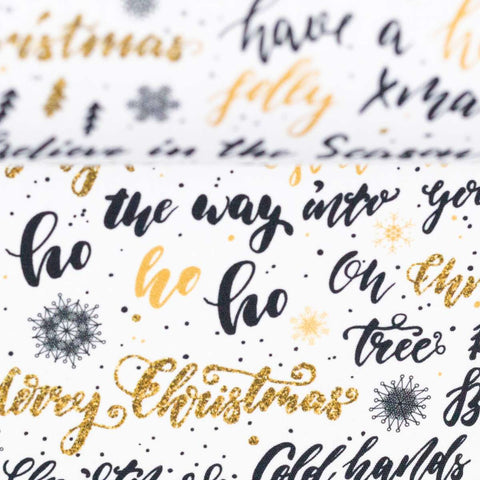 have a
jolly Xma
Believe in the Season
the way into
ho
ho
ho
Oh
tree
Merry Christmas
Cold hands